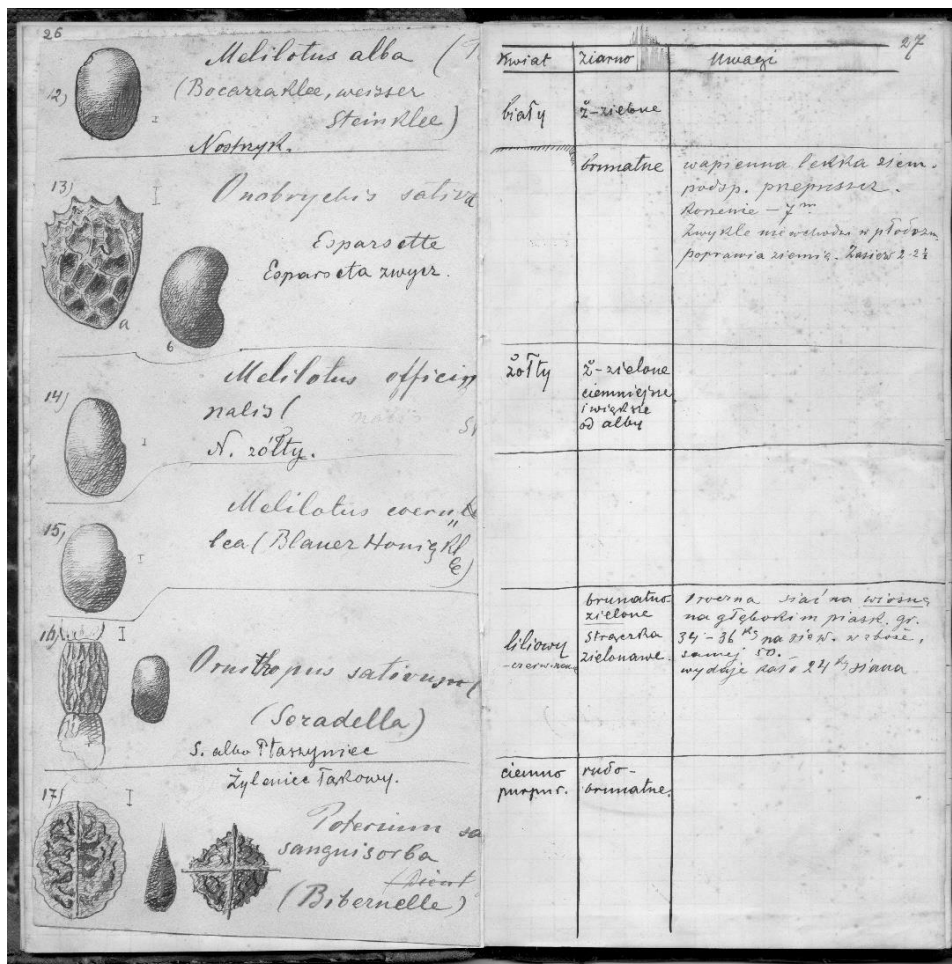 26
12)
Melilotus alba (
(Bocarraklee, weisser
Steinklee)
Nostrzyk.
13)
Onobrychis sativa
Esparsette
Esparseta zwycz.
a
b
14)
Melilotus officin
nalis (
N. żółty.
15)
Melilotus coeru
lea (Blauer Honig Kl
ee)
16)
Ornithopus sativus (
(Seradella)
S. albo Ptaszyniec
Żyleniec Łąkowy.
17)
Poterium sa
sanguisorba
(Bibernelle)
27
Kwiat ziarno Uwagi
biały ż-zielone
brunatne wapienna lekka ziem.
podsp. przepuszcz.
Korzenie – 7 m
Zwykle nie wchodzi w płodozm
poprawia ziemię. Zasiew 2-2½
żółty ż-zielone
ciemniejsze
i większe
od alby
liliowy
brunatno-
zielone
strączka
zielonawe.
1 roczna siać na wiosnę
na głębokim piask. gr.
34 – 36 kg na siew. w zboże,
samej 50.
wydaje koło 24 siana
ciemno
purpur.
rudo-
brunatne.